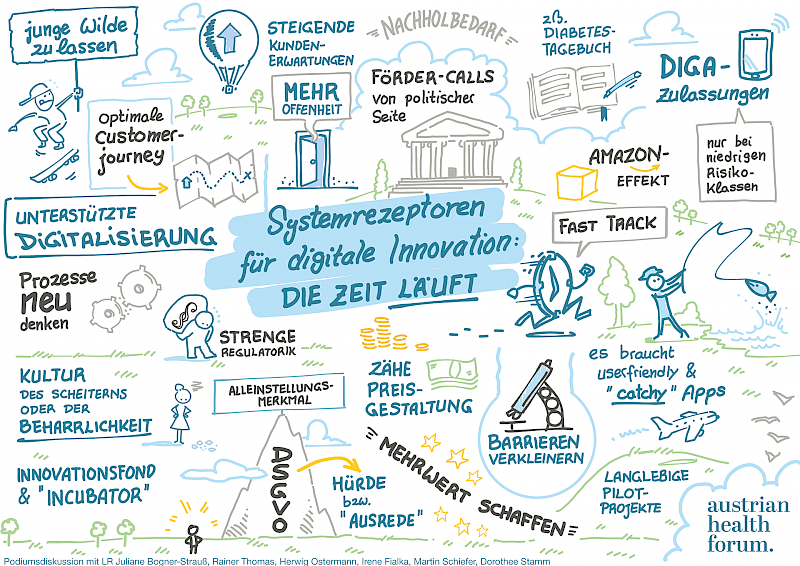 junge Wilde
zu lassen
STEIGENDE
KUNDEN-
ERWARTUNGEN
NACHHOLBEDARF
zB.
DIABETES-
TAGEBUCH
DIGA-
Zulassungen
nur bei
niedrigen
Risiko-
klassen
optimale
Customer-
journey
MEHR
OFFENHEIT
FÖRDER-CALLS
von politischer
Seite
AMAZON-
EFFEKT
FAST TRACK
UNTERSTÜTZTE
DIGITALISIERUNG
Systemrezeptoren
für digitale Innovation:
DIE ZEIT LÄUFT
Prozesse
neu
denken
§
STRENGE
REGULATORIK
KULTUR
DES SCHEITERNS
ODER DER
BEHARRLICHKEIT
ALLEINSTELLUNGS-
MERKMAL
ZÄHE
PREIS-
GESTALTUNG
BARRIEREN
VERKLEINERN
es braucht
userfriendly &
"catchy" Apps
INNOVATIONSFOND
& "INCUBATOR"
DSGVO
HÜRDE
bzw.
"AUSREDE"
MEHRWERT SCHAFFEN
LANGLEBIGE
PILOT-
PROJEKTE
austrian
health
forum.
Podiumsdiskussion mit LR Juliane Bogner-Strauß, Rainer Thomas, Herwig Ostermann, Irene Fialka, Martin Schiefer, Dorothee Stamm